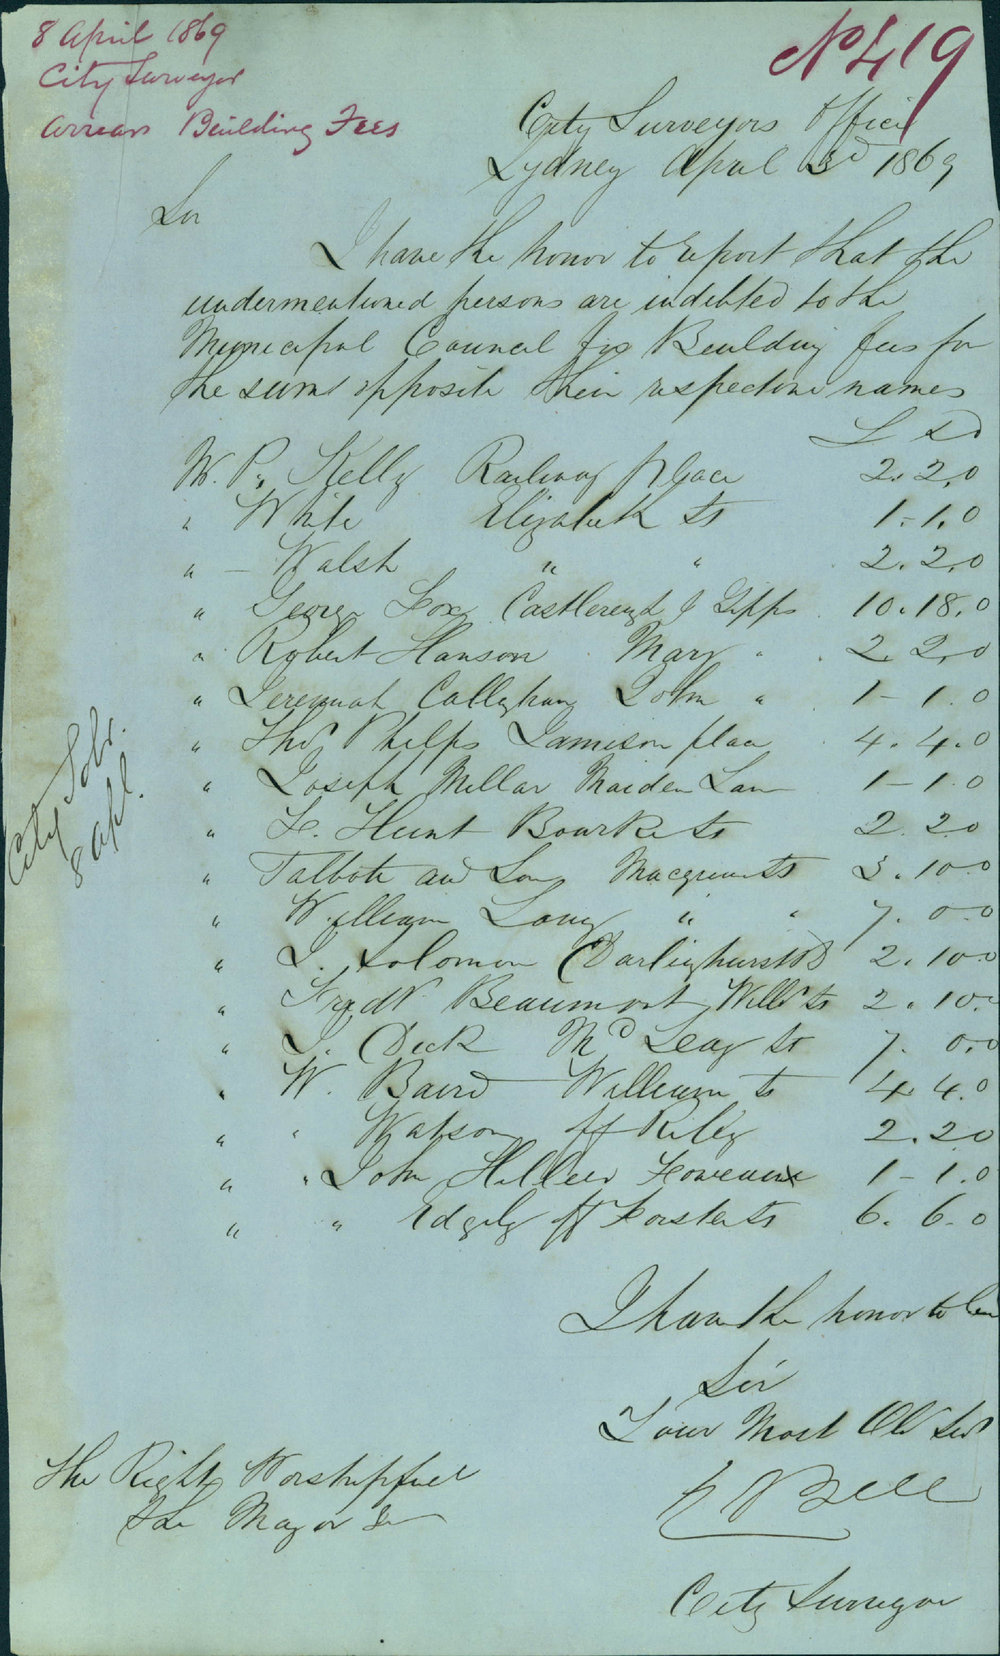 8 April 1869
City Surveyor
Arrears Building Fees
No 419
City Surveyors Office
Sydney April 3d 1869
Sir
I have the honor to report that the
undermentioned persons are indebted to the
Municipal Council for Building fees for
the sums opposite their respective names
£ s d
Mr. P. Kelly Railway place 2. 2. 0
" White Elizabeth St 1 - 1. 0
" - Walsh " " 2. 2. 0
" George Fox Castlereagh & Gipps 10. 18. 0
" Robert Hanson Mary " 2. 2. 0
" Jeremiah Callaghan John " 1 - 1. 0
" Thos Phelps Jamison place 4. 4. 0
" Joseph Millar Maiden Lane 1 - 1. 0
" F. Hunt Bourke St 2. 2. 0
" Talbot and Son Macquarie St 3. 10. 0
" William Long " " 7. 0. 0
" J. Solomon Darlinghurst Rd 2. 10. 0
" Fredk Beaumont Willm St 2. 10. 0
" J. Dick McLeay St 7. 0. 0
" W. Baird William St 4 4. 0
" " Watson off Riley 2. 2 0
" " John Hilleer Foveaux 1 - 1. 0
" " Edgely off Forster St 6. 6. 0
I have the honor to be
Sir
Your Most Obt Servt
Bell
City Surveyor
The Right Worshipful
The Mayor &c
City Solr.
8 Apl.